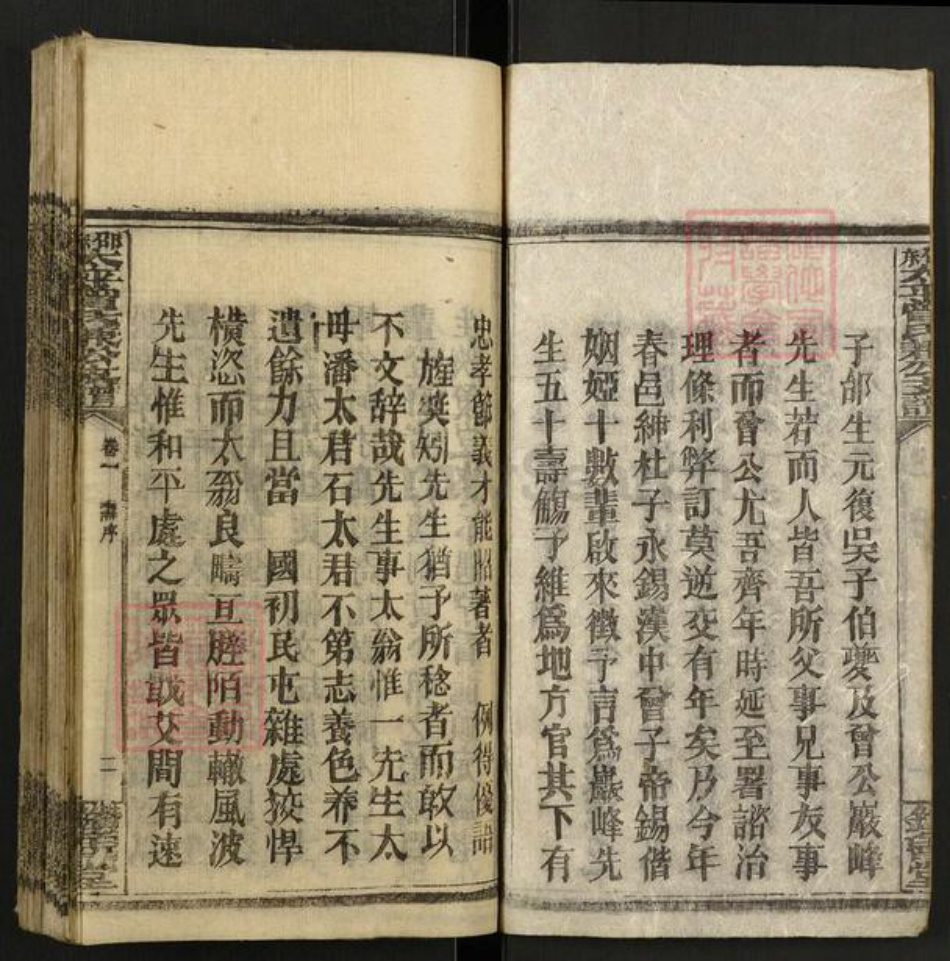 子邰生元復吳子伯夔及曾公巖峰
先生若而人皆吾所父事兄事友事
者而曾公尤吾齊年時延至署諮治
理條利弊訂莫逆交有年矣乃今年
春邑紳杜子永錫漢中曾子帝錫偕
姻婭十數輩啟來徵予言爲巖峰先
生五十壽觴予維爲地方官其下有
忠孝節義才能昭著者 例得優詰
旌獎矧先生猶予所稔者而敢以
不文辞哉先生事太翁惟一先生太
母潘太君石太君不第志養色养不
遺餘力且當 國初民屯雜處狡悍
橫恣而太翁良疇亘塍陌動轍風波
先生惟和平處之眾皆戢艾間有速
卷一
壽序
二